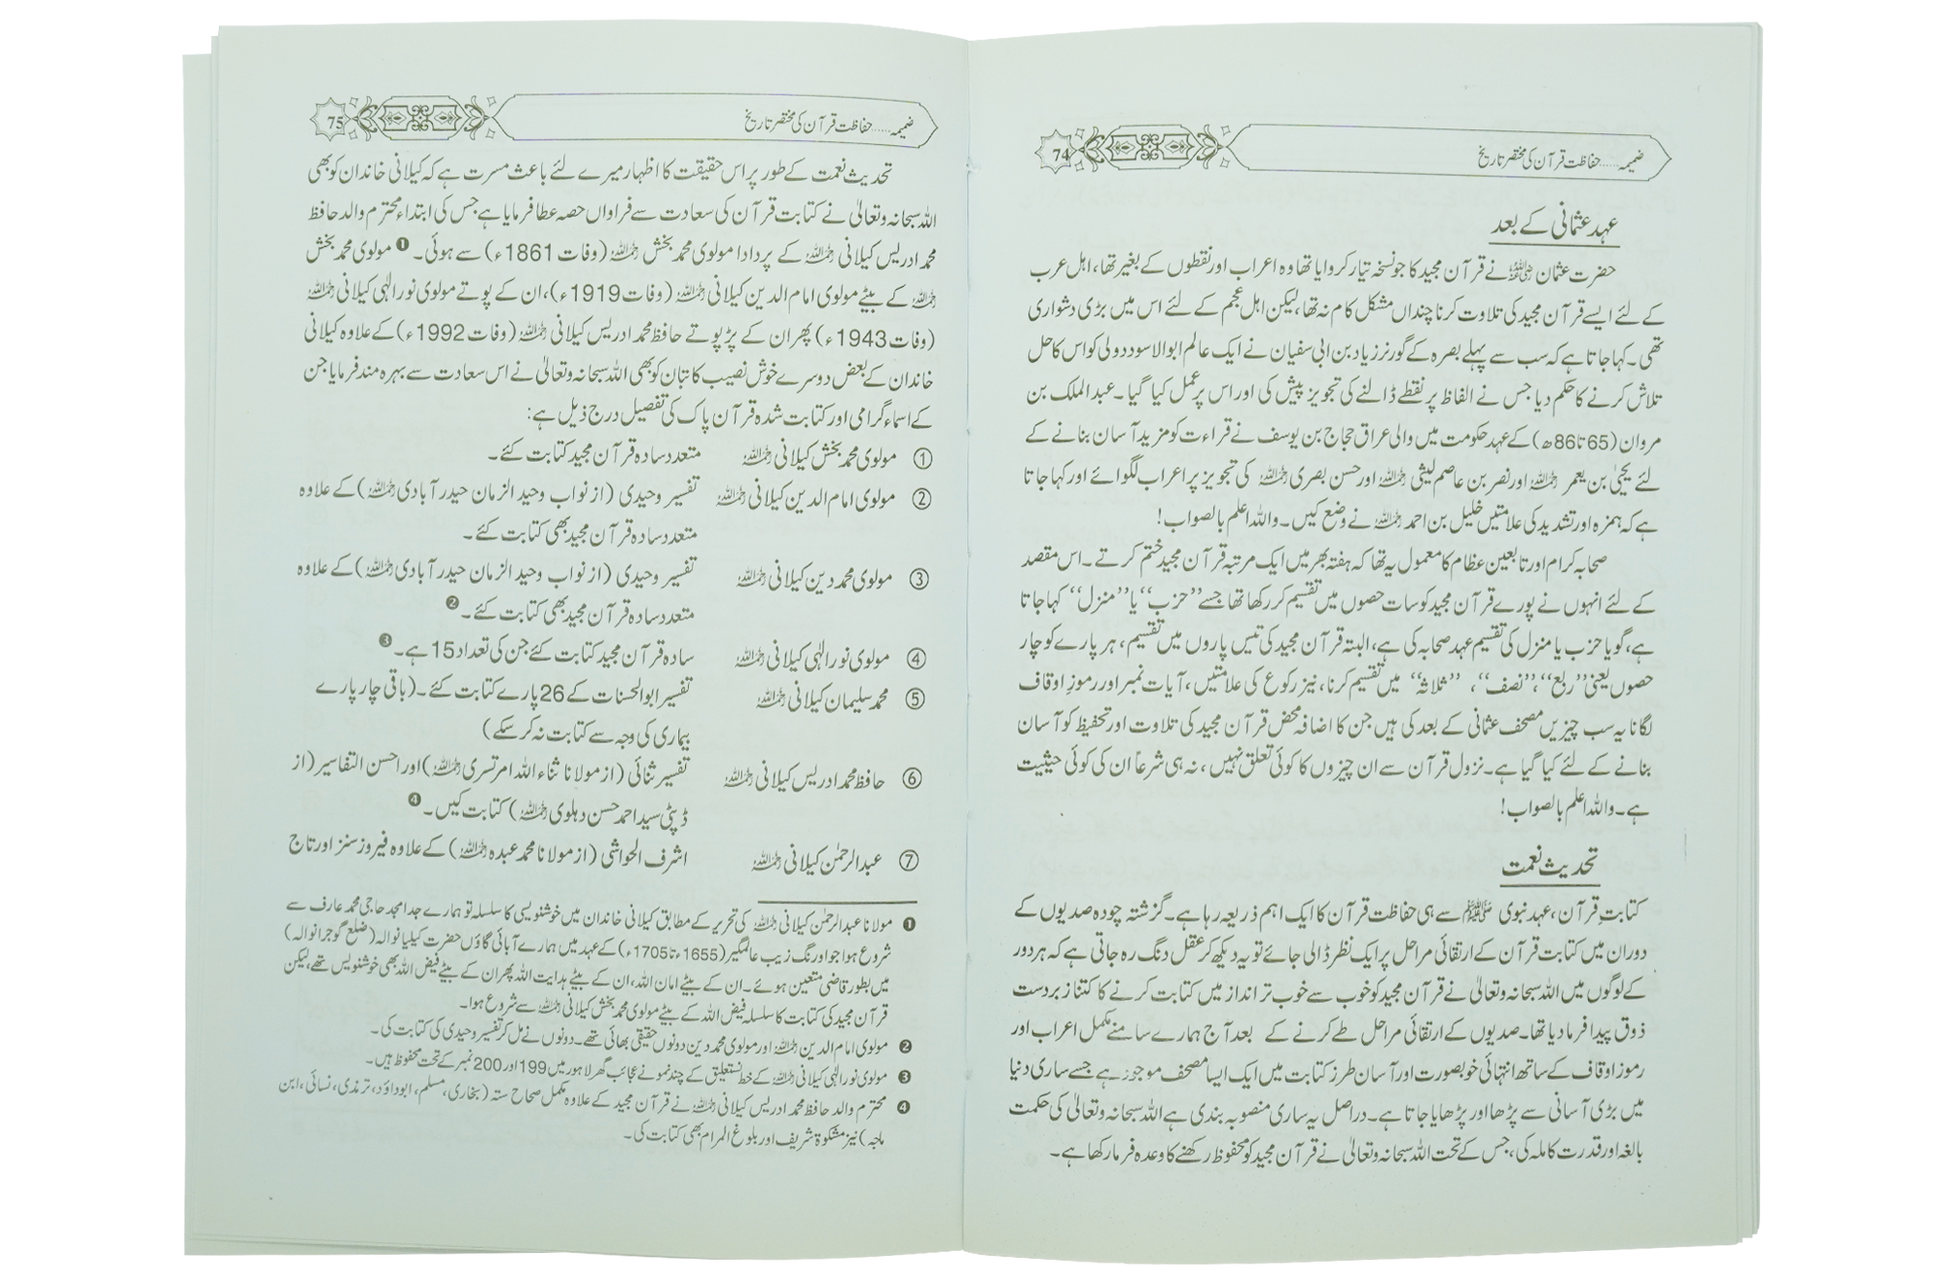 ضمیمہ......حفاظت قرآن کی مختصر تاریخ
74
عہد عثمانی کے بعد
حضرت عثمان رضی اللہ عنہ نے قرآن مجید کا جو نسخہ تیار کروایا تھا وہ اعراب اور نقطوں کے بغیر تھا، اہل عرب
کے لئے ایسے قرآن مجید کی تلاوت کرنا چنداں مشکل کام نہ تھا، لیکن اہل عجم کے لئے اس میں بڑی دشواری
تھی۔ کہا جاتا ہے کہ سب سے پہلے بصرہ کے گورنر زیاد بن ابی سفیان نے ایک عالم ابوالاسود دولی کو اس کا حل
تلاش کرنے کا حکم دیا جس نے الفاظ پر نقطے ڈالنے کی تجویز پیش کی اور اس پر عمل کیا گیا۔ عبدالملک بن
مروان (65 تا 86ھ) کے عہد حکومت میں والی عراق حجاج بن یوسف نے قراءت کو مزید آسان بنانے کے
لئے یحییٰ بن یعمر رحمہ اللہ اور نصر بن عاصم لیثی رحمہ اللہ اور حسن بصری رحمہ اللہ کی تجویز پر اعراب لگوائے اور کہا جاتا
ہے کہ ہمزہ اور تشدید کی علامتیں خلیل بن احمد رحمہ اللہ نے وضع کیں۔ واللہ اعلم بالصواب!
صحابہ کرام اور تابعین عظام کا معمول یہ تھا کہ ہفتہ بھر میں ایک مرتبہ قرآن مجید ختم کرتے۔ اس مقصد
کے لئے انہوں نے پورے قرآن مجید کو سات حصوں میں تقسیم کر رکھا تھا جسے ’’حزب‘‘ یا ’’منزل‘‘ کہا جاتا
ہے، گویا حزب یا منزل کی تقسیم عہد صحابہ کی ہے، البتہ قرآن مجید کی تیس پاروں میں تقسیم، ہر پارے کو چار
حصوں یعنی ’’ربع‘‘، ’’نصف‘‘، ’’ثلاثہ‘‘ میں تقسیم کرنا، نیز رکوع کی علامتیں، آیات نمبر اور رموزِ اوقاف
لگانا یہ سب چیزیں مصحف عثمانی کے بعد کی ہیں جن کا اضافہ محض قرآن مجید کی تلاوت اور تحفیظ کو آسان
بنانے کے لئے کیا گیا ہے۔ نزول قرآن سے ان چیزوں کا کوئی تعلق نہیں، نہ ہی شرعاً ان کی کوئی حیثیت
ہے۔ واللہ اعلم بالصواب!
تحدیث نعمت
کتابتِ قرآن، عہد نبوی ﷺ سے ہی حفاظت قرآن کا ایک اہم ذریعہ رہا ہے۔ گزشتہ چودہ صدیوں کے
دوران میں کتابت قرآن کے ارتقائی مراحل پر ایک نظر ڈالی جائے تو یہ دیکھ کر عقل دنگ رہ جاتی ہے کہ ہر دور
کے لوگوں میں اللہ سبحانہ وتعالیٰ نے قرآن مجید کو خوب سے خوب تر انداز میں کتابت کرنے کا کتنا زبردست
ذوق پیدا فرما دیا تھا۔ صدیوں کے ارتقائی مراحل طے کرنے کے بعد آج ہمارے سامنے مکمل اعراب اور
رموز اوقاف کے ساتھ انتہائی خوبصورت اور آسان طرز کتابت میں ایک ایسا مصحف موجود ہے جسے ساری دنیا
میں بڑی آسانی سے پڑھا اور پڑھایا جاتا ہے۔ دراصل یہ ساری منصوبہ بندی ہے اللہ سبحانہ وتعالیٰ کی حکمت
بالغہ اور قدرت کاملہ کی، جس کے تحت اللہ سبحانہ وتعالیٰ نے قرآن مجید کو محفوظ رکھنے کا وعدہ فرما رکھا ہے۔
ضمیمہ......حفاظت قرآن کی مختصر تاریخ
75
تحدیث نعمت کے طور پر اس حقیقت کا اظہار میرے لئے باعث مسرت ہے کہ کیلانی خاندان کو بھی
اللہ سبحانہ وتعالیٰ نے کتابت قرآن کی سعادت سے فراواں حصہ عطا فرمایا ہے جس کی ابتداء محترم والد حافظ
محمد ادریس کیلانی رحمہ اللہ کے پردادا مولوی محمد بخش رحمہ اللہ (وفات 1861ء) سے ہوئی۔ ❶ مولوی محمد بخش
رحمہ اللہ کے بیٹے مولوی امام الدین کیلانی رحمہ اللہ (وفات 1919ء)، ان کے پوتے مولوی نور الٰہی کیلانی رحمہ اللہ
(وفات 1943ء) پھر ان کے پڑپوتے حافظ محمد ادریس کیلانی رحمہ اللہ (وفات 1992ء) کے علاوہ کیلانی
خاندان کے بعض دوسرے خوش نصیب کاتبان کو بھی اللہ سبحانہ وتعالیٰ نے اس سعادت سے بہرہ مند فرمایا جن
کے اسماء گرامی اور کتابت شدہ قرآن پاک کی تفصیل درج ذیل ہے:
① مولوی محمد بخش کیلانی رحمہ اللہ متعدد سادہ قرآن مجید کتابت کئے۔
② مولوی امام الدین کیلانی رحمہ اللہ تفسیر وحیدی (از نواب وحید الزمان حیدر آبادی رحمہ اللہ) کے علاوہ
متعدد سادہ قرآن مجید بھی کتابت کئے۔
③ مولوی محمد دین کیلانی رحمہ اللہ تفسیر وحیدی (از نواب وحید الزمان حیدر آبادی رحمہ اللہ) کے علاوہ
متعدد سادہ قرآن مجید بھی کتابت کئے۔ ❷
④ مولوی نور الٰہی کیلانی رحمہ اللہ سادہ قرآن مجید کتابت کئے جن کی تعداد 15 ہے۔ ❸
⑤ محمد سلیمان کیلانی رحمہ اللہ تفسیر ابوالحسنات کے 26 پارے کتابت کئے۔ (باقی چار پارے
بیماری کی وجہ سے کتابت نہ کر سکے)
⑥ حافظ محمد ادریس کیلانی رحمہ اللہ تفسیر ثنائی (از مولانا ثناء اللہ امرتسری رحمہ اللہ) اور احسن التفاسیر (از
ڈپٹی سید احمد حسن دہلوی رحمہ اللہ) کتابت کیں۔ ❹
⑦ عبدالرحمٰن کیلانی رحمہ اللہ اشرف الحواشی (از مولانا محمد عبدہ رحمہ اللہ) کے علاوہ فیروز سنز اور تاج
❶ مولانا عبدالرحمٰن کیلانی رحمہ اللہ کی تحریر کے مطابق کیلانی خاندان میں خوشنویسی کا سلسلہ تو ہمارے جد امجد حاجی محمد عارف سے
شروع ہوا جو اورنگ زیب عالمگیر (1655ء تا 1705ء) کے عہد میں ہمارے آبائی گاؤں حضرت کیلیانوالہ (ضلع گوجرانوالہ)
میں بطور قاضی متعین ہوئے۔ ان کے بیٹے امان اللہ، ان کے بیٹے ہدایت اللہ پھر ان کے بیٹے فیض اللہ بھی خوشنویس تھے، لیکن
قرآن مجید کی کتابت کا سلسلہ فیض اللہ کے بیٹے مولوی محمد بخش کیلانی رحمہ اللہ سے شروع ہوا۔
❷ مولوی امام الدین رحمہ اللہ اور مولوی محمد دین دونوں حقیقی بھائی تھے۔ دونوں نے مل کر تفسیر وحیدی کی کتابت کی۔
❸ مولوی نور الٰہی کیلانی رحمہ اللہ کے خط نستعلیق کے چند نمونے عجائب گھر لاہور میں 199 اور 200 نمبر کے تحت محفوظ ہیں۔
❹ محترم والد حافظ محمد ادریس کیلانی رحمہ اللہ نے قرآن مجید کے علاوہ مکمل صحاح ستہ (بخاری، مسلم، ابوداؤد، ترمذی، نسائی، ابن
ماجہ) نیز مشکوۃ شریف اور بلوغ المرام بھی کتابت کی۔